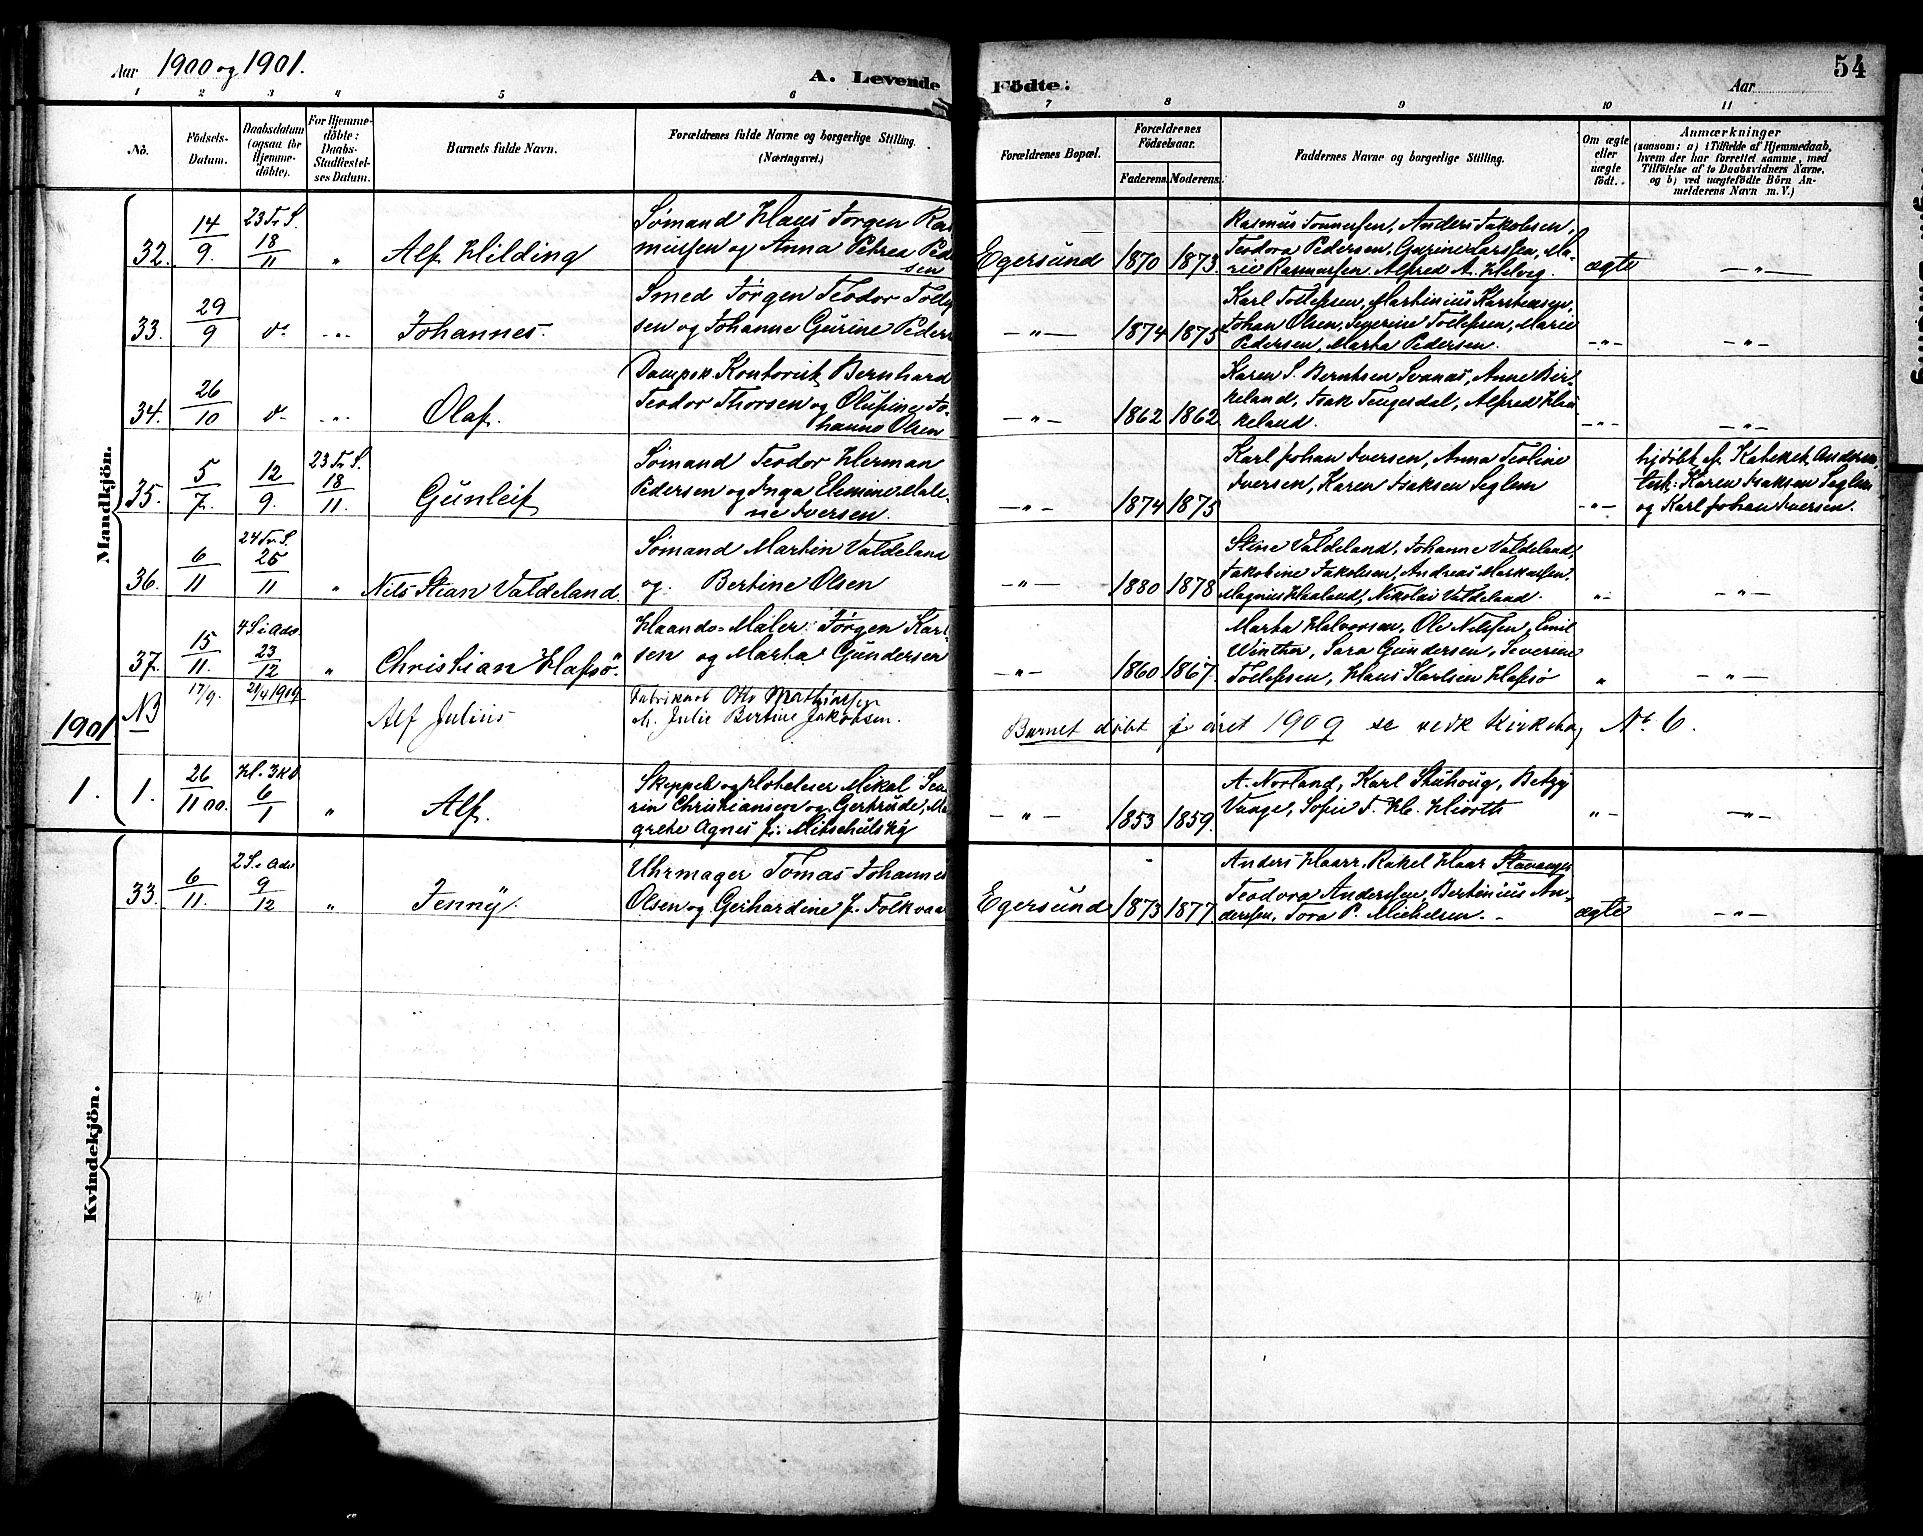 Aar 1900 og 1901.
A. Levende Födte:
Aar
54
1 2 3 4 5 6 7 8 9 10 11
No.
Födsels-Datum.
Daabsdatum (ogsaa for Hjemme-döbte).
For Hjemme-döbte: Daabs-Stadfæstel-ses Datum.
Barnets fulde Navn.
Forældrenes fulde Navne og borgerlige Stilling. (Næringsvei.)
Forældrenes Bopæl.
Forældrenes Födselsaar.
Faderens. Moderens.
Faddernes Navne og borgerlige Stilling.
Om ægte eller uægte födt.
Anmærkninger
(saasom: a) i Tilfælde af Hjemmedaab, hvem der har forrettet samme, med Tilföielse af to Daabsvidners Navne, og b) ved uægtefödte Börn An-melderens Navn m. V.)
Mandkjön.
32. 14/9. 23 Tr. S. 18/11 " Alf Hilding
Sømand Claus Jørgen Ras
mussen og Anna Petrea Peder
sen
Egersund 1870 1873.
Rasmus Tønnessen, Anders Jakobsen,
Teodora Pedersen, Gurine Larssen, Ma-
rie Rasmussen. Alfred A. Helvig.
ægte — " —
33. 29/9 do - " - Johannes.
Smed Jørgen Teodor Tollef
sen og Johanne Gurine Peders
— " — 1874 1875
Karl Tollefsen, Martinius Karstensen,
Johan Olsen, Severine Tollefsen, Marie
Pedersen, Marta Pedersen.
- " - - " -
34. 26/10 do - " - Olaf.
Dampsk. Kontorist Bernhard
Teodor Thorsen og Olufine Jo-
hanna Olsen
— " — 1862 1862
Karen S. Berntsen Svanes, Anne Bir-
keland, Isak Tengesdal, Alfred Hau
keland.
- " - - " -
35. 5/7. 12/9. 23 Tr. S. 18/11. Gunleif
Sømand Teodor Herman
Pedersen og Inga Elemine Male-
ne Iversen.
— " — 1874 1875
Karl Johan Iversen, Anna Teoline
Iversen, Karen Isaksen Seglem
- " -
hjdøbt af Kateket Andersen,
Test: Karen Isaksen Seglem
og Karl Johan Iversen.
36. 6/11 24 Tr. S. 25/11 " Nils Stian Valdeland.
Sømand Martin Valdeland
og Bertine Olsen
— " — 1880 1878
Stine Valdeland, Johanne Valdeland,
Jakobine Jakobsen, Andreas Markussen,
Magnus Haaland, Nikolai Valdeland.
" - - " -
37. 15/11. 4 S. i Adv. 23/12 " Christian Hafsö.
Haandv. Maler Jørgen Karl-
sen og Marta Gundersen
— " — 1860 1867.
Marta Halvorsen, Ole Nilssen, Emil
Winther, Sara Gundersen, Severine
Tollefsen, Hans Karlsen Hafsø
" - " -
NB 17/9. 21/4 1909 Alf Julius
Fabrikarb. Otto Mathiassen
og Julie Bertine Jakobsen.
Barnet døbt i året 1909 se vedk Kirkebog No 6.
1901
1. 1. 26/11 00. H. 3 K. D. 6/1 " Alf.
Skipper og Hoteleier Mikal Seve
rin Christiansen og Gertrude, Ma
grete Agnes f. Mitschulsky
— " — 1853 1859.
A. Norland, Karl Skuhoug, Betzy
Vange, Sofie F. H. Hiorth
" - - " -
Kvindekjön.
33. 6/11. 2 S. i Adv 9/12 " Jenny.
Uhrmager Tomas Johannes
Olsen og Gerhardine f. Folkvar
Egersund 1873 1877.
Anders Haarr, Rakel Haar Stavanger
Teodora Anderssen, Bertinius An-
derssen, Tora P. Michelsen.
ægte - " -